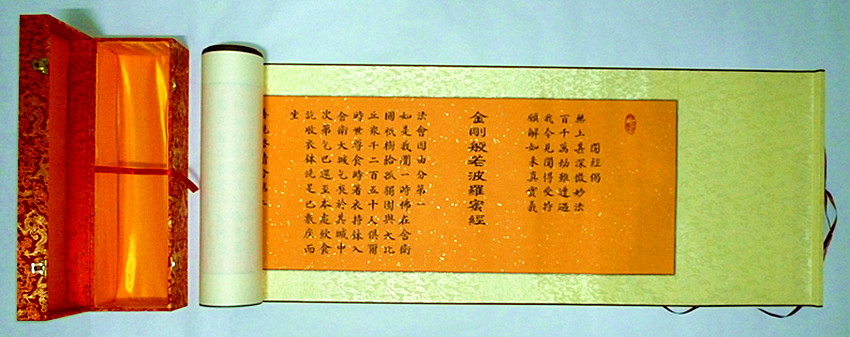 開經偈
無上甚深微妙法
百千萬劫難遭遇
我今見聞得受持
願解如來真實義
金剛般若波羅蜜經
法會因由分第一
如是我聞一時佛在舍衛
國祇樹給孤獨園與大比
丘眾千二百五十人俱爾
時世尊食時著衣持鉢入
舍衛大城乞食於其城中
次第乞已還至本處飯食
訖收衣鉢洗足已敷座而
坐